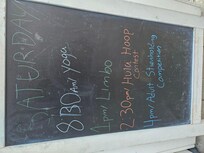 SATURDAY
8:30am Yoga
1pm Limbo
2:30pm Hula Hoop
Contest
4pm Adult
Competition